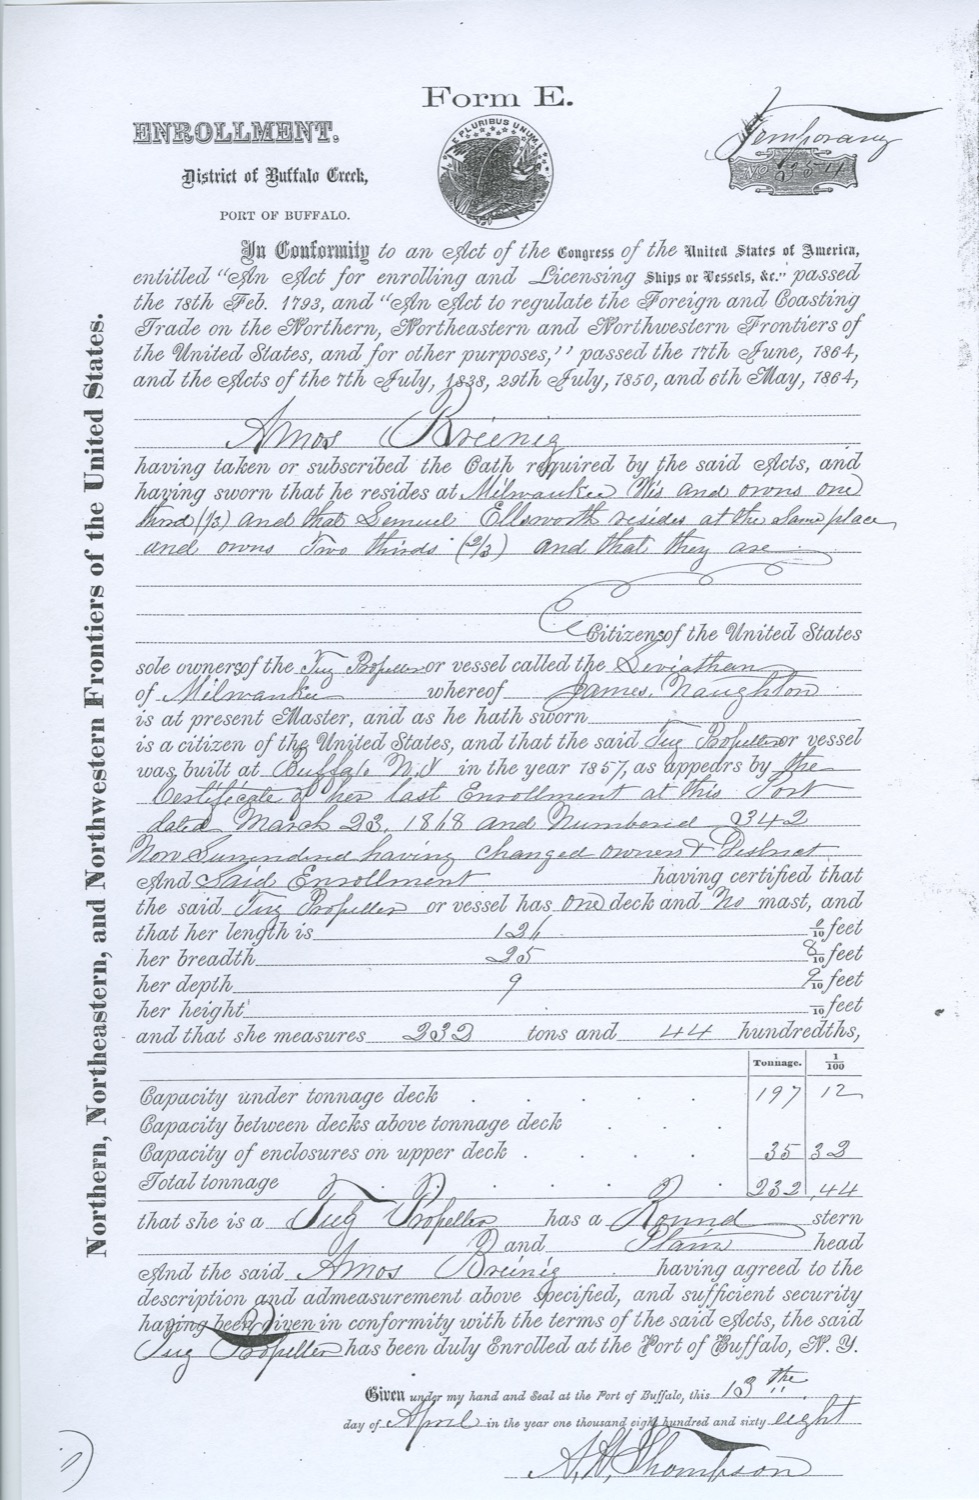 Form E.
ENROLLMENT.
Temporary
E PLURIBUS UNUM
No 354
District of Buffalo Creek,
PORT OF BUFFALO.
In Conformity to an Act of the Congress of the United States of America,
entitled "An Act for enrolling and Licensing Ships or Vessels, &c." passed
the 18th Feb. 1793, and "An Act to regulate the Foreign and Coasting
Trade on the Northern, Northeastern and Northwestern Frontiers of
the United States, and for other purposes,'' passed the 17th June, 1864,
and the Acts of the 7th July, 1838, 29th July, 1850, and 6th May, 1864,
Amos Breenig
having taken or subscribed the Oath required by the said Acts, and
having sworn that he resides at Milwaukee Wis and owns one
third (1/3) and that Semuel Ellsworth resides at the same place
and owns Two thirds (2/3) and that they are
Citizens of the United States
sole owners of the Tug Propeller or vessel called the Leviathan
of Milwaukee whereof James Naughton
is at present Master, and as he hath sworn
is a citizen of the United States, and that the said Tug Propeller or vessel
was built at Buffalo N.Y in the year 1857, as appears by the
Certificate of her last Enrollment at this Port
dated March 23. 1868 and Numbered 342
Now Surrendered having changed owners & District
And Said Enrollment having certified that
the said Tug Propeller or vessel has one deck and No mast, and
that her length is 126 /10 feet
her breadth 25 8/10 feet
her depth 9 9/10 feet
her height /10 feet
and that she measures 232 tons and 44 hundredths,
Tonnage. 1/100
Capacity under tonnage deck . . . . 197 12
Capacity between decks above tonnage deck . . .
Capacity of enclosures on upper deck . . . . 35 32
Total tonnage . . . . 232 .44
that she is a Tug Propeller has a Round stern
and Plain head
And the said Amos Breinig having agreed to the
description and admeasurement above specified, and sufficient security
having been given in conformity with the terms of the said Acts, the said
Tug Propeller has been duly Enrolled at the Port of Buffalo, N. Y.
Given under my hand and Seal at the Port of Buffalo, this 13 the
day of April in the year one thousand eight hundred and sixty eight
Thompson
Northern, Northeastern, and Northwestern Frontiers of the United States.